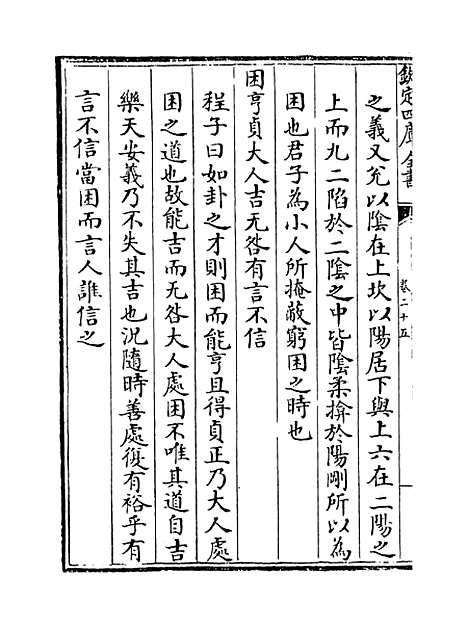 欽定四庫全書
卷二十五
之義又兊以陰在上坎以陽居下與上六在二陽之
上而九二陷於二陰之中皆陰柔揜於陽剛所以為
困也君子為小人所掩蔽窮困之時也
困亨貞大人吉无咎有言不信
程子曰如卦之才則困而能亨且得貞正乃大人處
困之道也故能吉而无咎大人處困不唯其道自吉
樂天安義乃不失其吉也況隨時善處復有裕乎有
言不信當困而言人誰信之